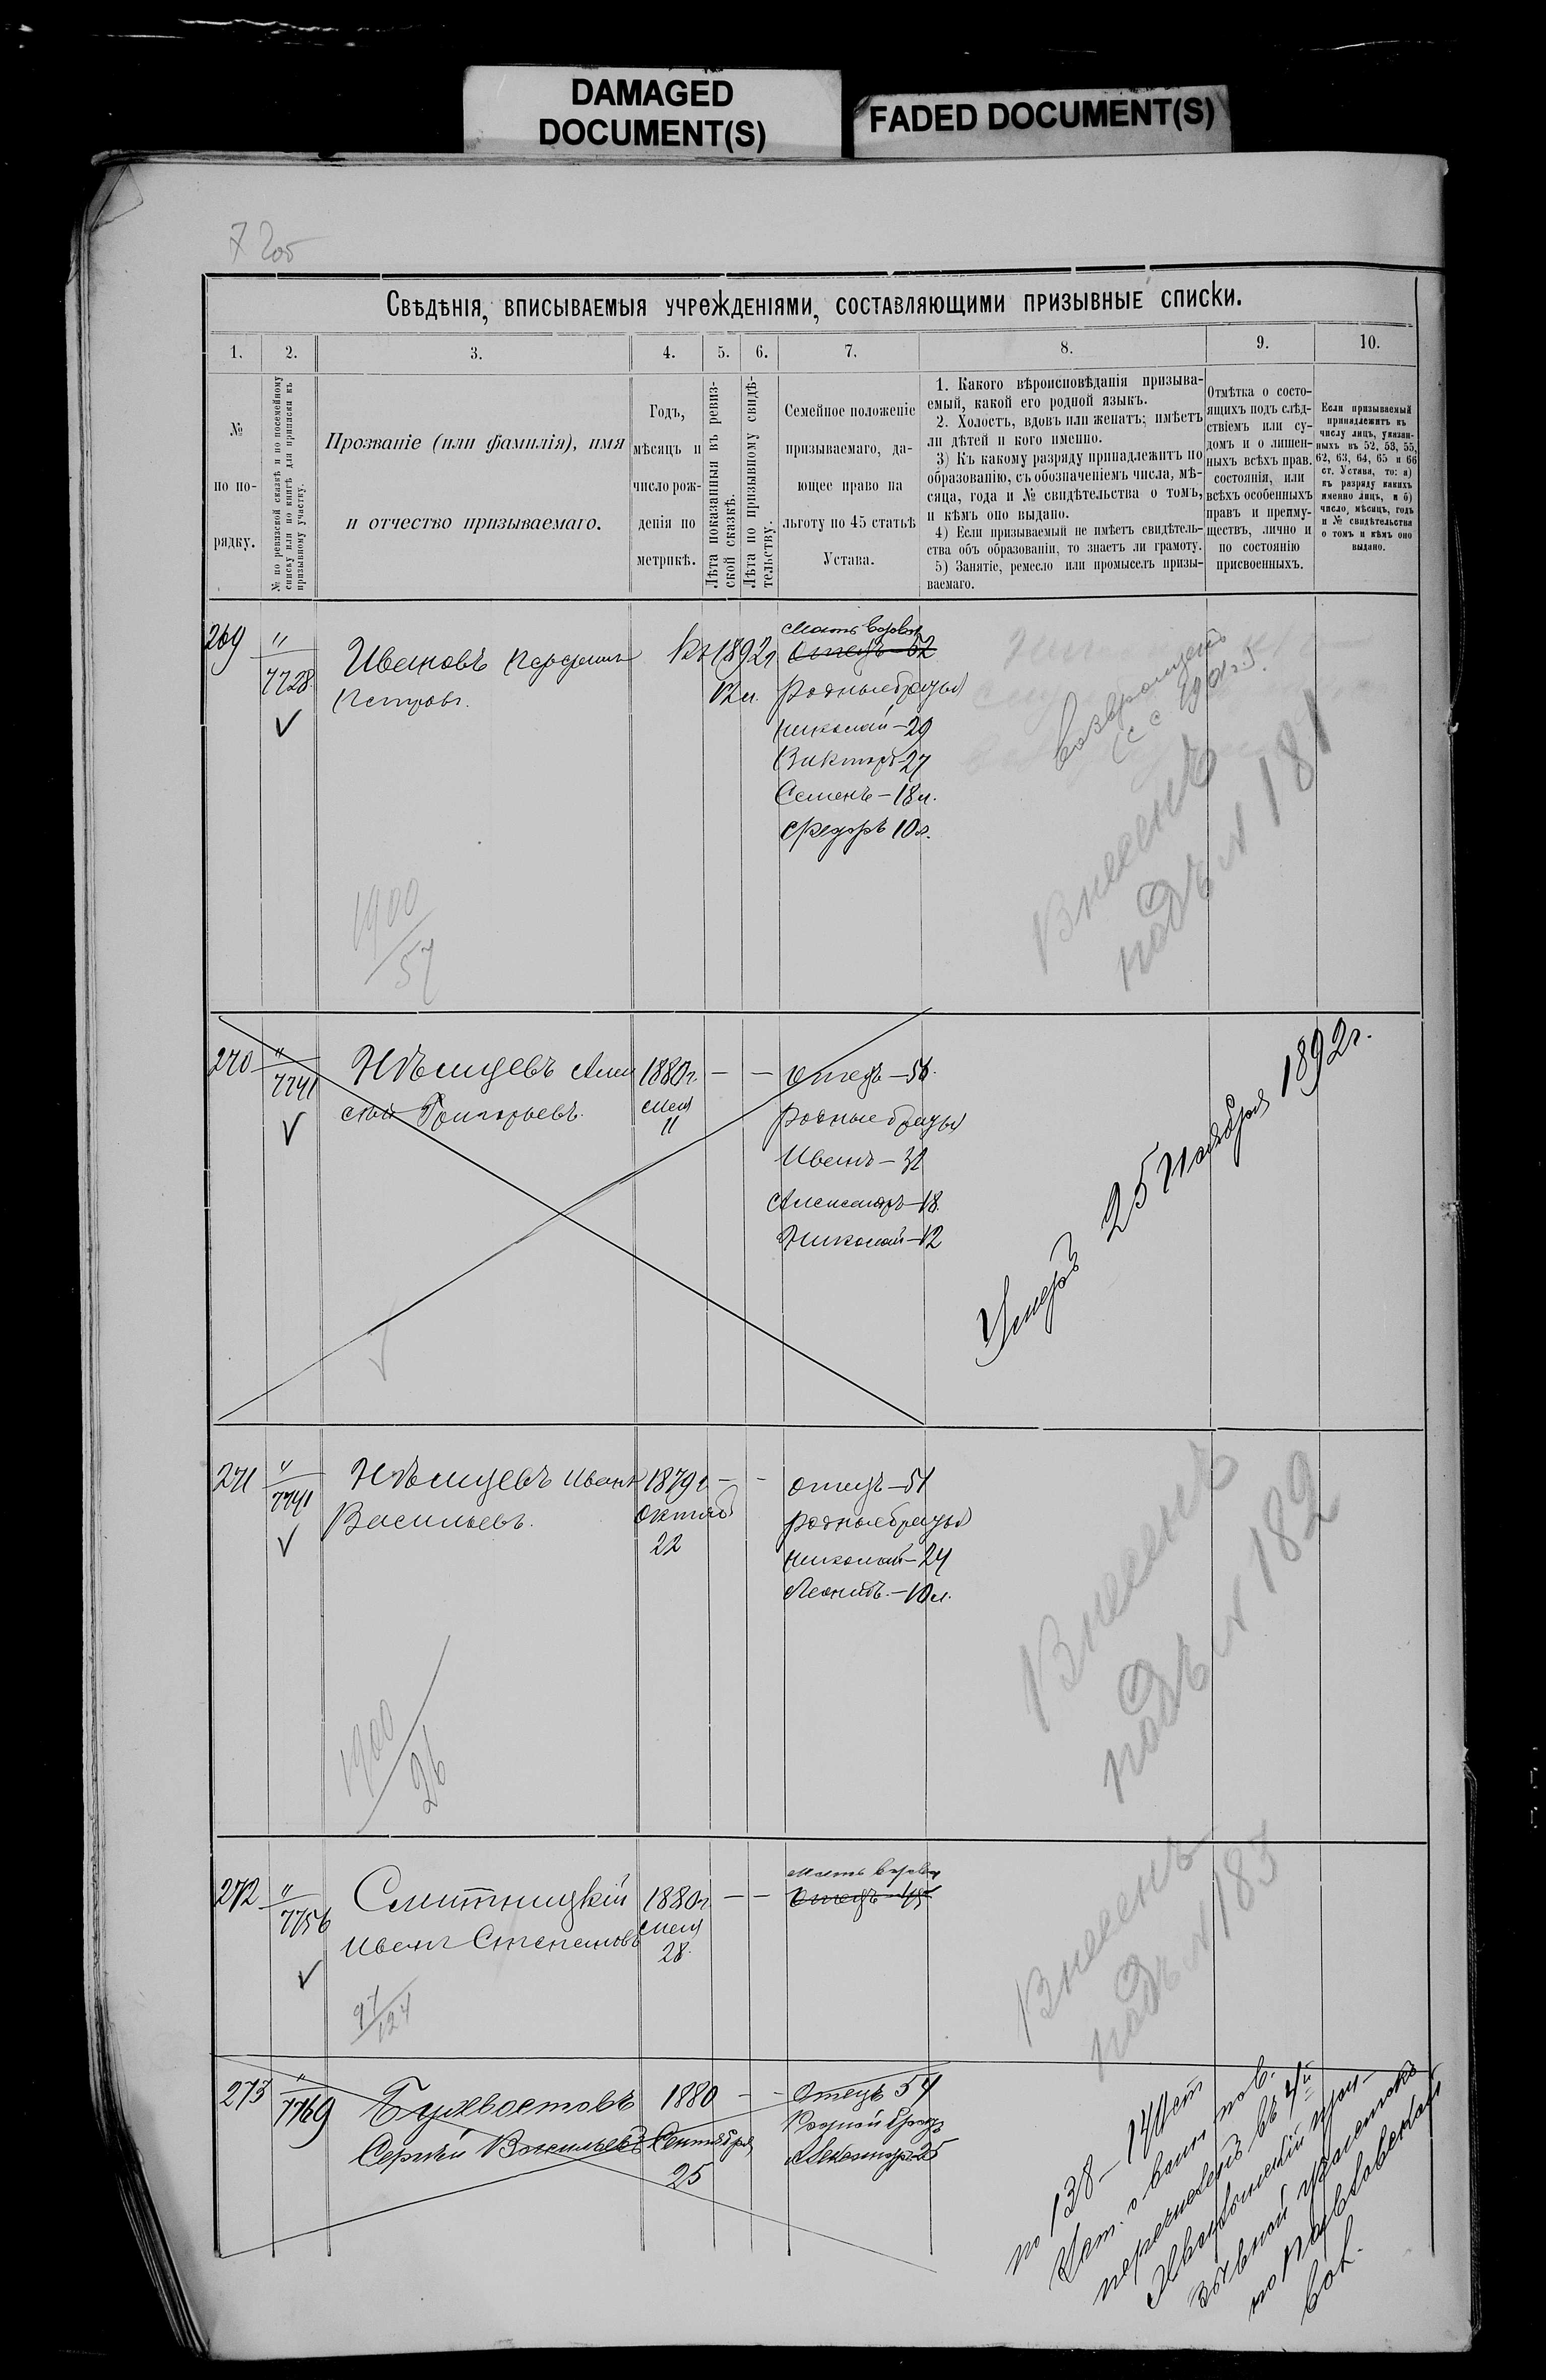 DAMAGED
DOCUMENT(S)
FADED DOCUMENT(S)
Свѣдѣнія, вписываемыя учрежденіями, составляющими призывные списки.
1. 2. 3. 4. 5. 6. 7. 8. 9. 10.
№
по по-
рядку.
№ по ревизской сказкѣ и по посемейному
списку или по книгѣ для приписки къ
призывному участку.
Прозваніе (или фамилія), имя
и отчество призываемаго.
Годъ,
мѣсяцъ и
число рож-
денія по
метрикѣ.
Лѣта показанныя въ ревиз-
ской сказкѣ.
Лѣта по призывному свидѣ-
тельству.
Семейное положеніе
призываемаго, да-
ющее право на
льготу по 45 статьѣ
Устава.
1. Какого вѣроисповѣданія призыва-
емый, какой его родной языкъ.
2. Холостъ, вдовъ или женатъ; имѣетъ
ли дѣтей и кого именно.
3) Къ какому разряду принадлежитъ по
образованію, съ обозначеніемъ числа, мѣ-
сяца, года и № свидѣтельства о томъ,
и кѣмъ оно выдано.
4) Если призываемый не имѣетъ свидѣтель-
ства объ образованіи, то знаетъ ли грамоту.
5) Занятіе, ремесло или промыселъ призы-
ваемаго.
Отмѣтка о состо-
ящихъ подъ слѣд-
ствіемъ или су-
домъ и о лишен-
ныхъ всѣхъ прав.
состоянія, или
всѣхъ особенныхъ
правъ и преиму-
ществъ, лично и
по состоянію
присвоенныхъ.
Если призываемый
принадлежитъ къ
числу лицъ, указан-
ныхъ въ 52, 53, 55,
62, 63, 64, 65 и 66
ст. Устава, то: а)
къ разряду какихъ
именно лицъ, и б)
число, мѣсяцъ, годъ
и № свидѣтельства
о томъ и кѣмъ оно
выдано.
269 " 7728
Ивановъ
Петровъ.
Въ 1892г
12л.
Мать вдова
Отецъ - 52
Родные братья
Николай - 29
Викторъ 27
Семенъ - 18л.
Федоръ 10л.
возвращенъ
1901 г.
Внесенъ
подъ № 181
1900
57
270 " 7741
Нѣмцевъ Алек
сѣй Григорьевъ.
1880г.
Мая
11
— —
Отецъ - 56.
Родные братья
Иванъ - 32
Александръ - 18.
Николай - 12
Умеръ 25 Ноября 1892г.
271 " 7741
Нѣмцевъ Иванъ
Васильевъ.
1879г
Октяб
22
- -
Отецъ - 51
Родные братья
Николай - 24
Леонидъ. - 10л.
Внесенъ
подъ № 182
1900
26
272 " 7756
Смитницкій
Иванъ Степановъ
1880г.
Мая
28.
— —
Мать вдова
Отецъ - 45
Внесенъ
подъ № 183
97
124
273 " 7769
Бухвостовъ
Сергѣй Васильевъ
1880
Сентября
25
- -
Отецъ 54
Родной братъ
Александръ 25
по 138 - 140 ст
Уст. о воин. пов.
перечисленъ въ 4й
призывной участокъ
по
вол.